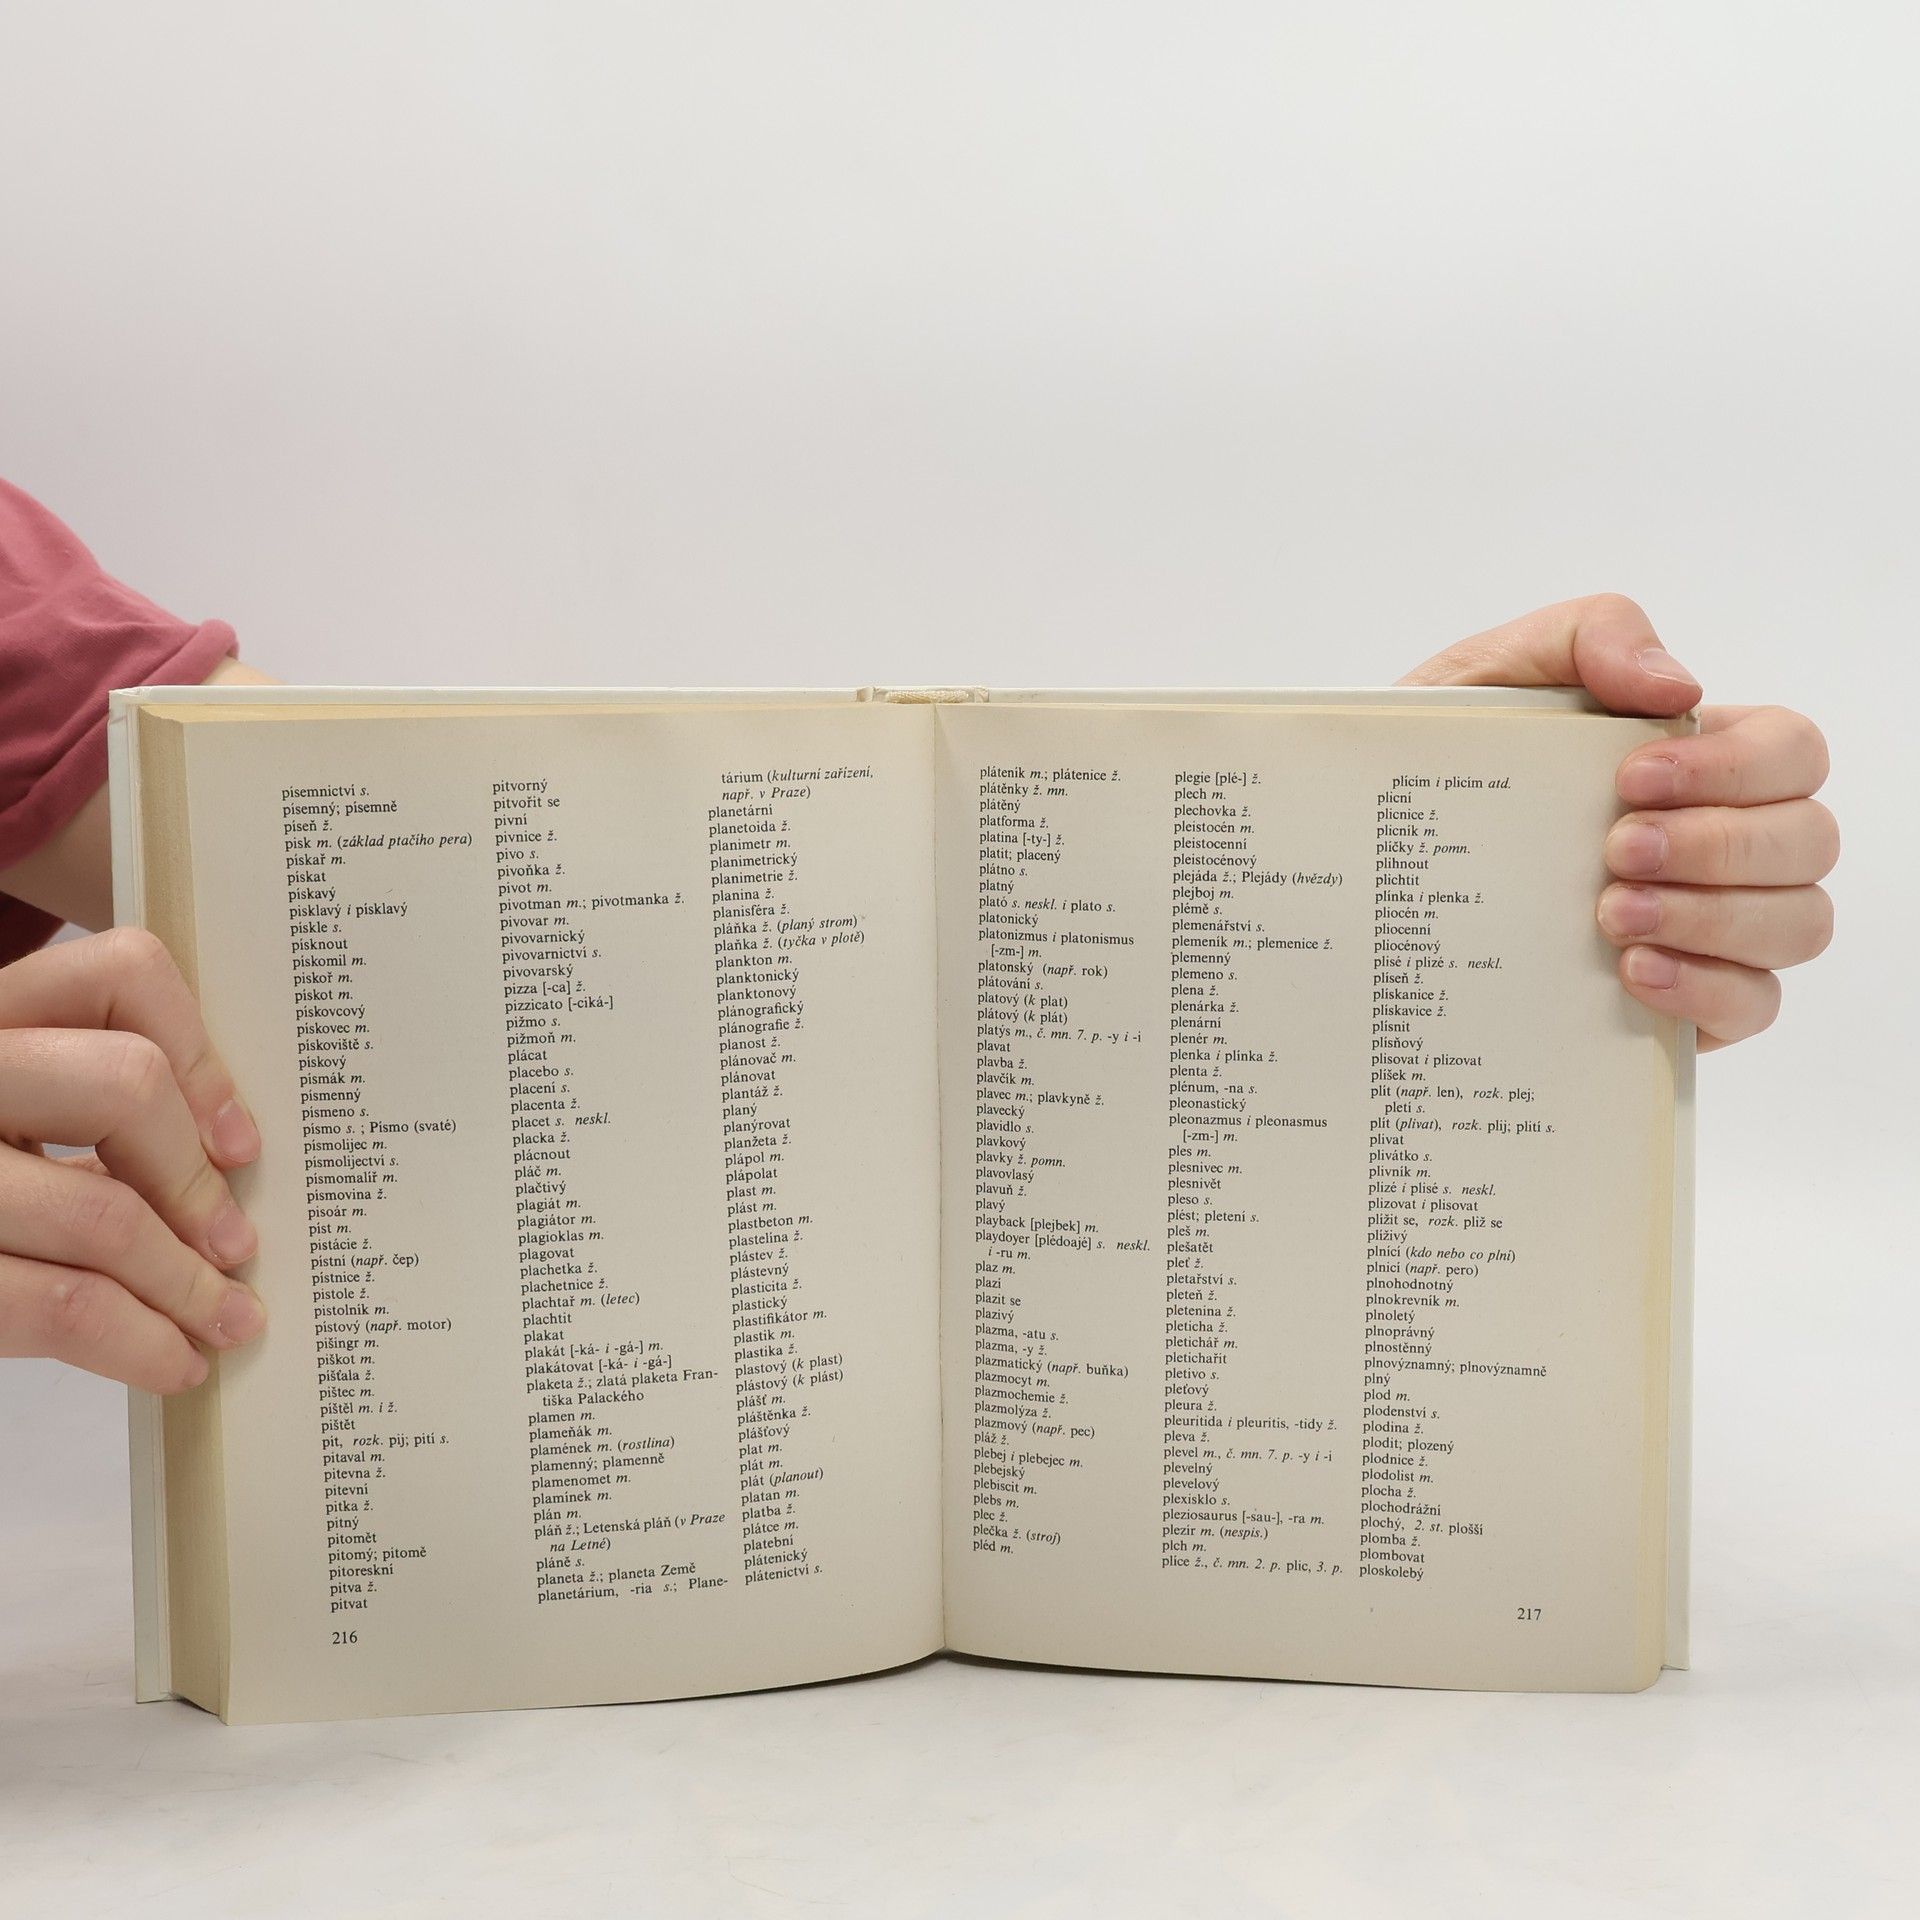 písemnictví s.
písemný; písemně
píseň ž.
pisk m. (základ ptačího pera)
pískař m.
pískat
pískavý
pisklavý i písklavý
pískle s.
písknout
pískomil m.
piskoř m.
pískot m.
pískovcový
pískovec m.
pískoviště s.
pískový
písmák m.
písmenný
písmeno s.
písmo s. ; Písmo (svaté)
písmolijec m.
písmolijectví s.
písmomalíř m.
písmovina ž.
pisoár m.
píst m.
pistácie ž.
pístní (např. čep)
pístnice ž.
pistole ž.
pistolník m.
pístový (např. motor)
pišingr m.
piškot m.
píšťala ž.
pištec m.
píštěl m. i ž.
pištět
pít, rozk. pij; pití s.
pitaval m.
pitevna ž.
pitevní
pitka ž.
pitný
pitomět
pitomý; pitomě
pitoreskní
pitva ž.
pitvat
216
pitvorný
pitvořit se
pivní
pivnice ž.
pivo s.
pivoňka ž.
pivot m.
pivotman m.; pivotmanka ž.
pivovar m.
pivovarnický
pivovarnictví s.
pivovarský
pizza [-ca] ž.
pizzicato [-ciká-]
pižmo s.
pižmoň m.
plácat
placebo s.
placení s.
placenta ž.
placet s. neskl.
placka ž.
plácnout
pláč m.
plačtivý
plagiát m.
plagiátor m.
plagioklas m.
plagovat
plachetka ž.
plachetnice ž.
plachtař m. (letec)
plachtit
plakat
plakát [-ká- i -gá-] m.
plakátovat [-ká- i -gá-]
plaketa ž.; zlatá plaketa Fran-
tiška Palackého
plamen m.
plameňák m.
plamének m. (rostlina)
plamenný; plamenně
plamenomet m.
plamínek m.
plán m.
pláň ž.; Letenská pláň (v Praze
na Letné)
pláně s.
planeta ž.; planeta Země
planetárium, -ria s.; Plane-
tárium (kulturní zařízení,
např. v Praze)
planetární
planetoida ž.
planimetr m.
planimetrický
planimetrie ž.
planina ž.
planisféra ž.
pláňka ž. (planý strom)
plaňka ž. (tyčka v plotě)
plankton m.
planktonický
planktonový
plánografický
plánografie ž.
planost ž.
plánovač m.
plánovat
plantáž ž.
planý
planýrovat
planžeta ž.
plápol m.
plápolat
plast m.
plást m.
plastbeton m.
plastelína ž.
plástev ž.
plástevný
plasticita ž.
plastický
plastifikátor m.
plastik m.
plastika ž.
plastový (k plast)
plástový (k plást)
plášť m.
pláštěnka ž.
plášťový
plat m.
plát m.
plát (planout)
platan m.
platba ž.
plátce m.
platební
plátenický
plátenictví s.
pláteník m.; plátenice ž.
plátěnky ž. mn.
plátěný
platforma ž.
platina [-ty-] ž.
platit; placený
plátno s.
platný
plató s. neskl. i plato s.
platonický
platonizmus i platonismus
[-zm-] m.
platonský (např. rok)
plátování s.
platový (k plat)
plátový (k plát)
platýs m., č. mn. 7. p. -y i -i
plavat
plavba ž.
plavčík m.
plavec m.; plavkyně ž.
plavecký
plavidlo s.
plavkový
plavky ž. pomn.
plavovlasý
plavuň ž.
plavý
playback [plejbek] m.
playdoyer [plédoajé] s. neskl.
i -ru m.
plaz m.
plazí
plazit se
plazivý
plazma, -atu s.
plazma, -y ž.
plazmatický (např. buňka)
plazmocyt m.
plazmochemie ž.
plazmolýza ž.
plazmový (např. pec)
pláž ž.
plebej i plebejec m.
plebejský
plebiscit m.
plebs m.
plec ž.
plečka ž. (stroj)
pléd m.
plegie [plé-] ž.
plech m.
plechovka ž.
pleistocén m.
pleistocenní
pleistocénový
plejáda ž.; Plejády (hvězdy)
plejboj m.
plémě s.
plemenářství s.
plemeník m.; plemenice ž.
plemenný
plemeno s.
plena ž.
plenárka ž.
plenární
plenér m.
plenka i plínka ž.
plenta ž.
plénum, -na s.
pleonastický
pleonazmus i pleonasmus
[-zm-] m.
ples m.
plesnivec m.
plesnivět
pleso s.
plést; pletení s.
pleš m.
plešatět
pleť ž.
pletařství s.
pleteň ž.
pletenina ž.
pleticha ž.
pletichář m.
pletichařit
pletivo s.
pleťový
pleura ž.
pleuritida i pleuritis, -tidy ž.
pleva ž.
plevel m., č. mn. 7. p. -y i -i
plevelný
plevelový
plexisklo s.
pleziosaurus [-sau-], -ra m.
plezír m. (nespis.)
plch m.
plíce ž., č. mn. 2. p. plic, 3. p.
plícím i plicím atd.
plicní
plicnice ž.
plicník m.
plíčky ž. pomn.
plihnout
plichtit
plínka i plenka ž.
pliocén m.
pliocenní
pliocénový
plisé i plizé s. neskl.
plíseň ž.
plískanice ž.
plískavice ž.
plísnit
plísňový
plisovat i plizovat
plíšek m.
plít (např. len), rozk. plej;
pletí s.
plít (plivat), rozk. plij; plití s.
plivat
plivátko s.
plivník m.
plizé i plisé s. neskl.
plizovat i plisovat
plížit se, rozk. pliž se
plíživý
plnící (kdo nebo co plní)
plnicí (např. pero)
plnohodnotný
plnokrevník m.
plnoletý
plnoprávný
plnostěnný
plnovýznamný; plnovýznamně
plný
plod m.
plodenství s.
plodina ž.
plodit; plozený
plodnice ž.
plodolist m.
plocha ž.
plochodrážní
plochý, 2. st. plošší
plomba ž.
plombovat
ploskolebý
217